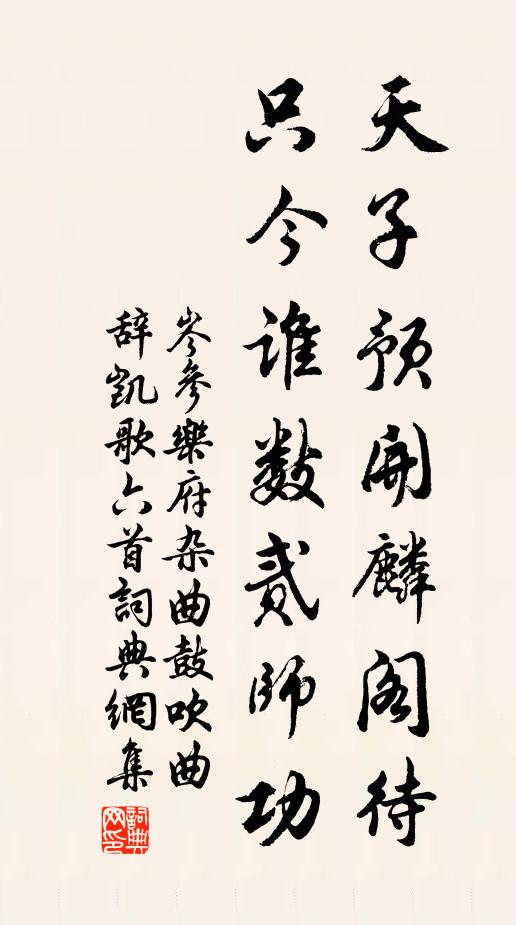 天子预開麟阁待
只今谁数贰师功
岑参樂府杂曲鼓吹曲
辞凯歌六首詞典網集
詞典
网印